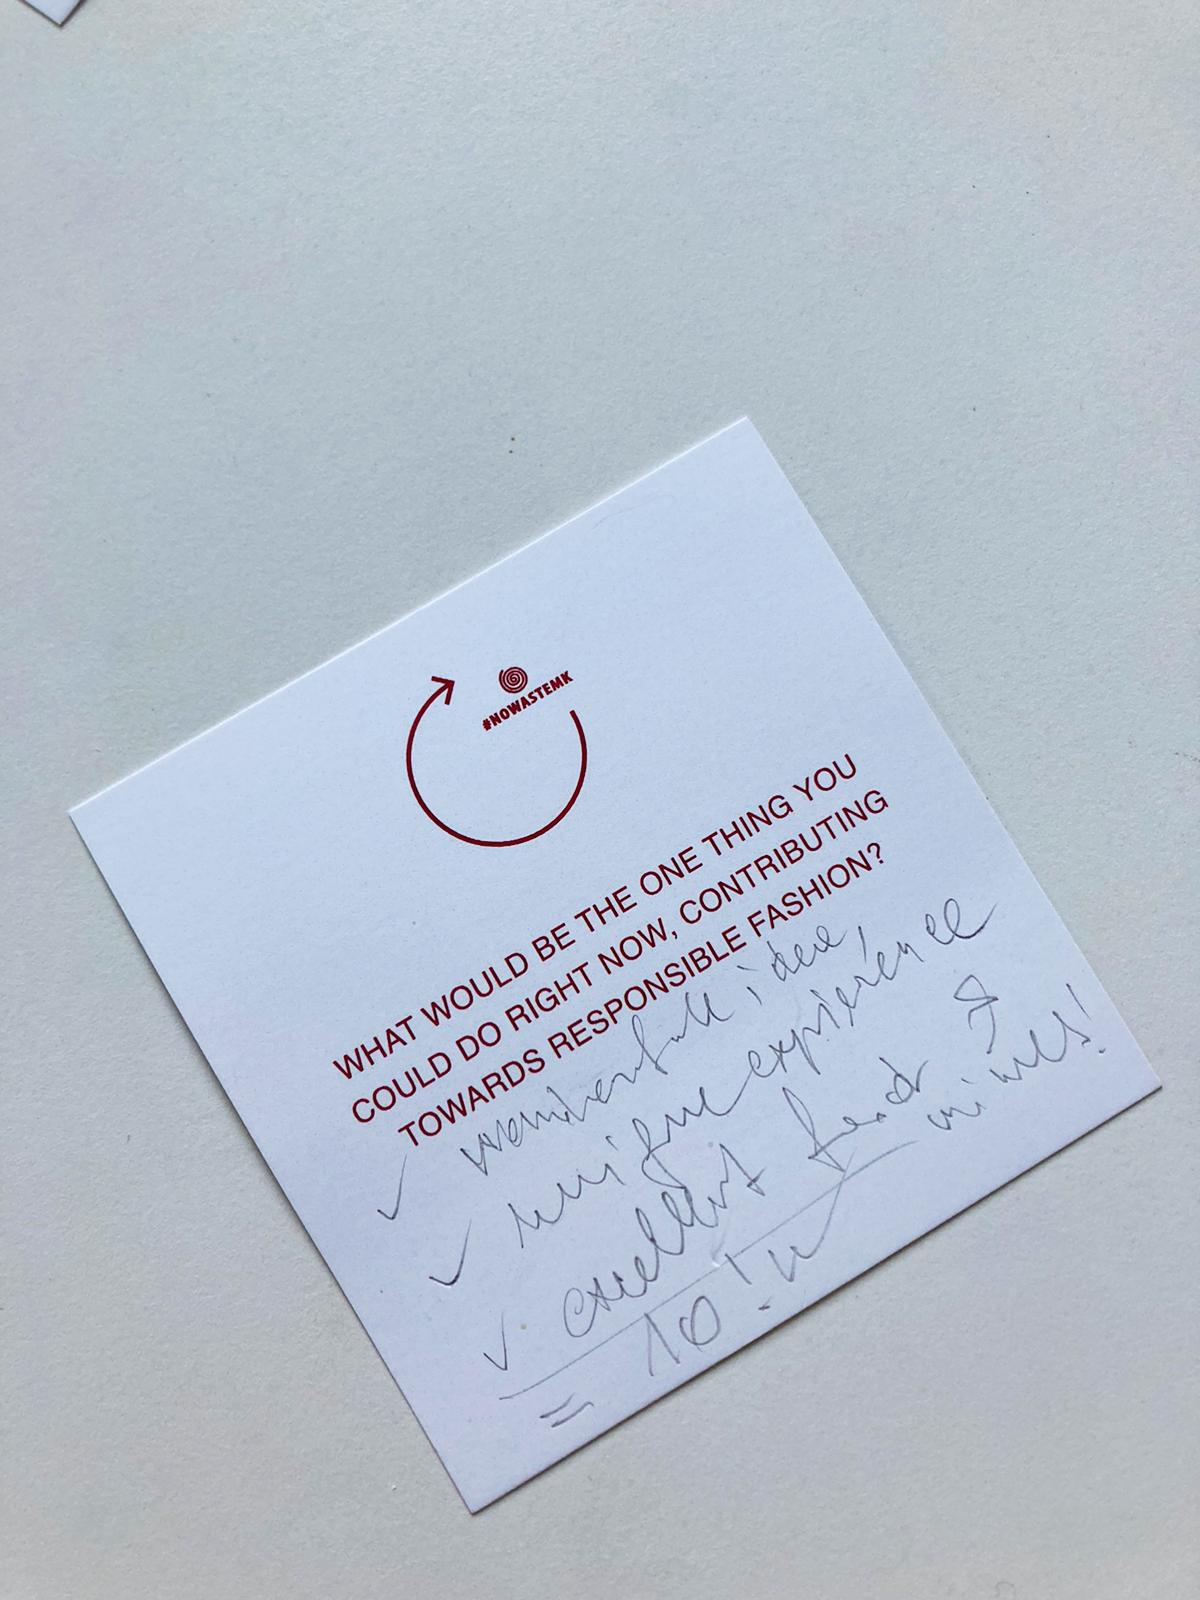 #NOWASTEMK
WHAT WOULD BE THE ONE THING YOU
COULD DO RIGHT NOW, CONTRIBUTING
TOWARDS RESPONSIBLE FASHION?
✓ idea,
✓ unique experience
✓ excellent food &
wines!
= 10!